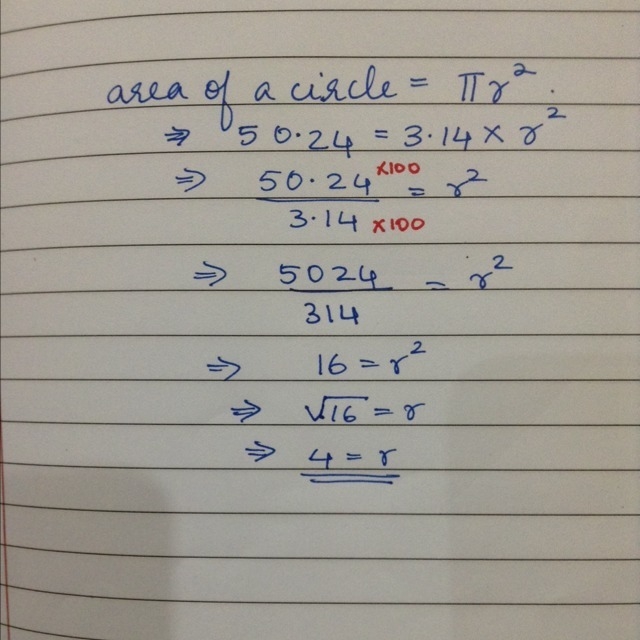 area of a circle = πr².
⇒ 50.24 = 3.14 × r²
⇒ 50.24 ×100 = r²
3.14 ×100
⇒ 5024 = r²
314
⇒ 16 = r²
⇒ √16 = r
⇒ 4 = r